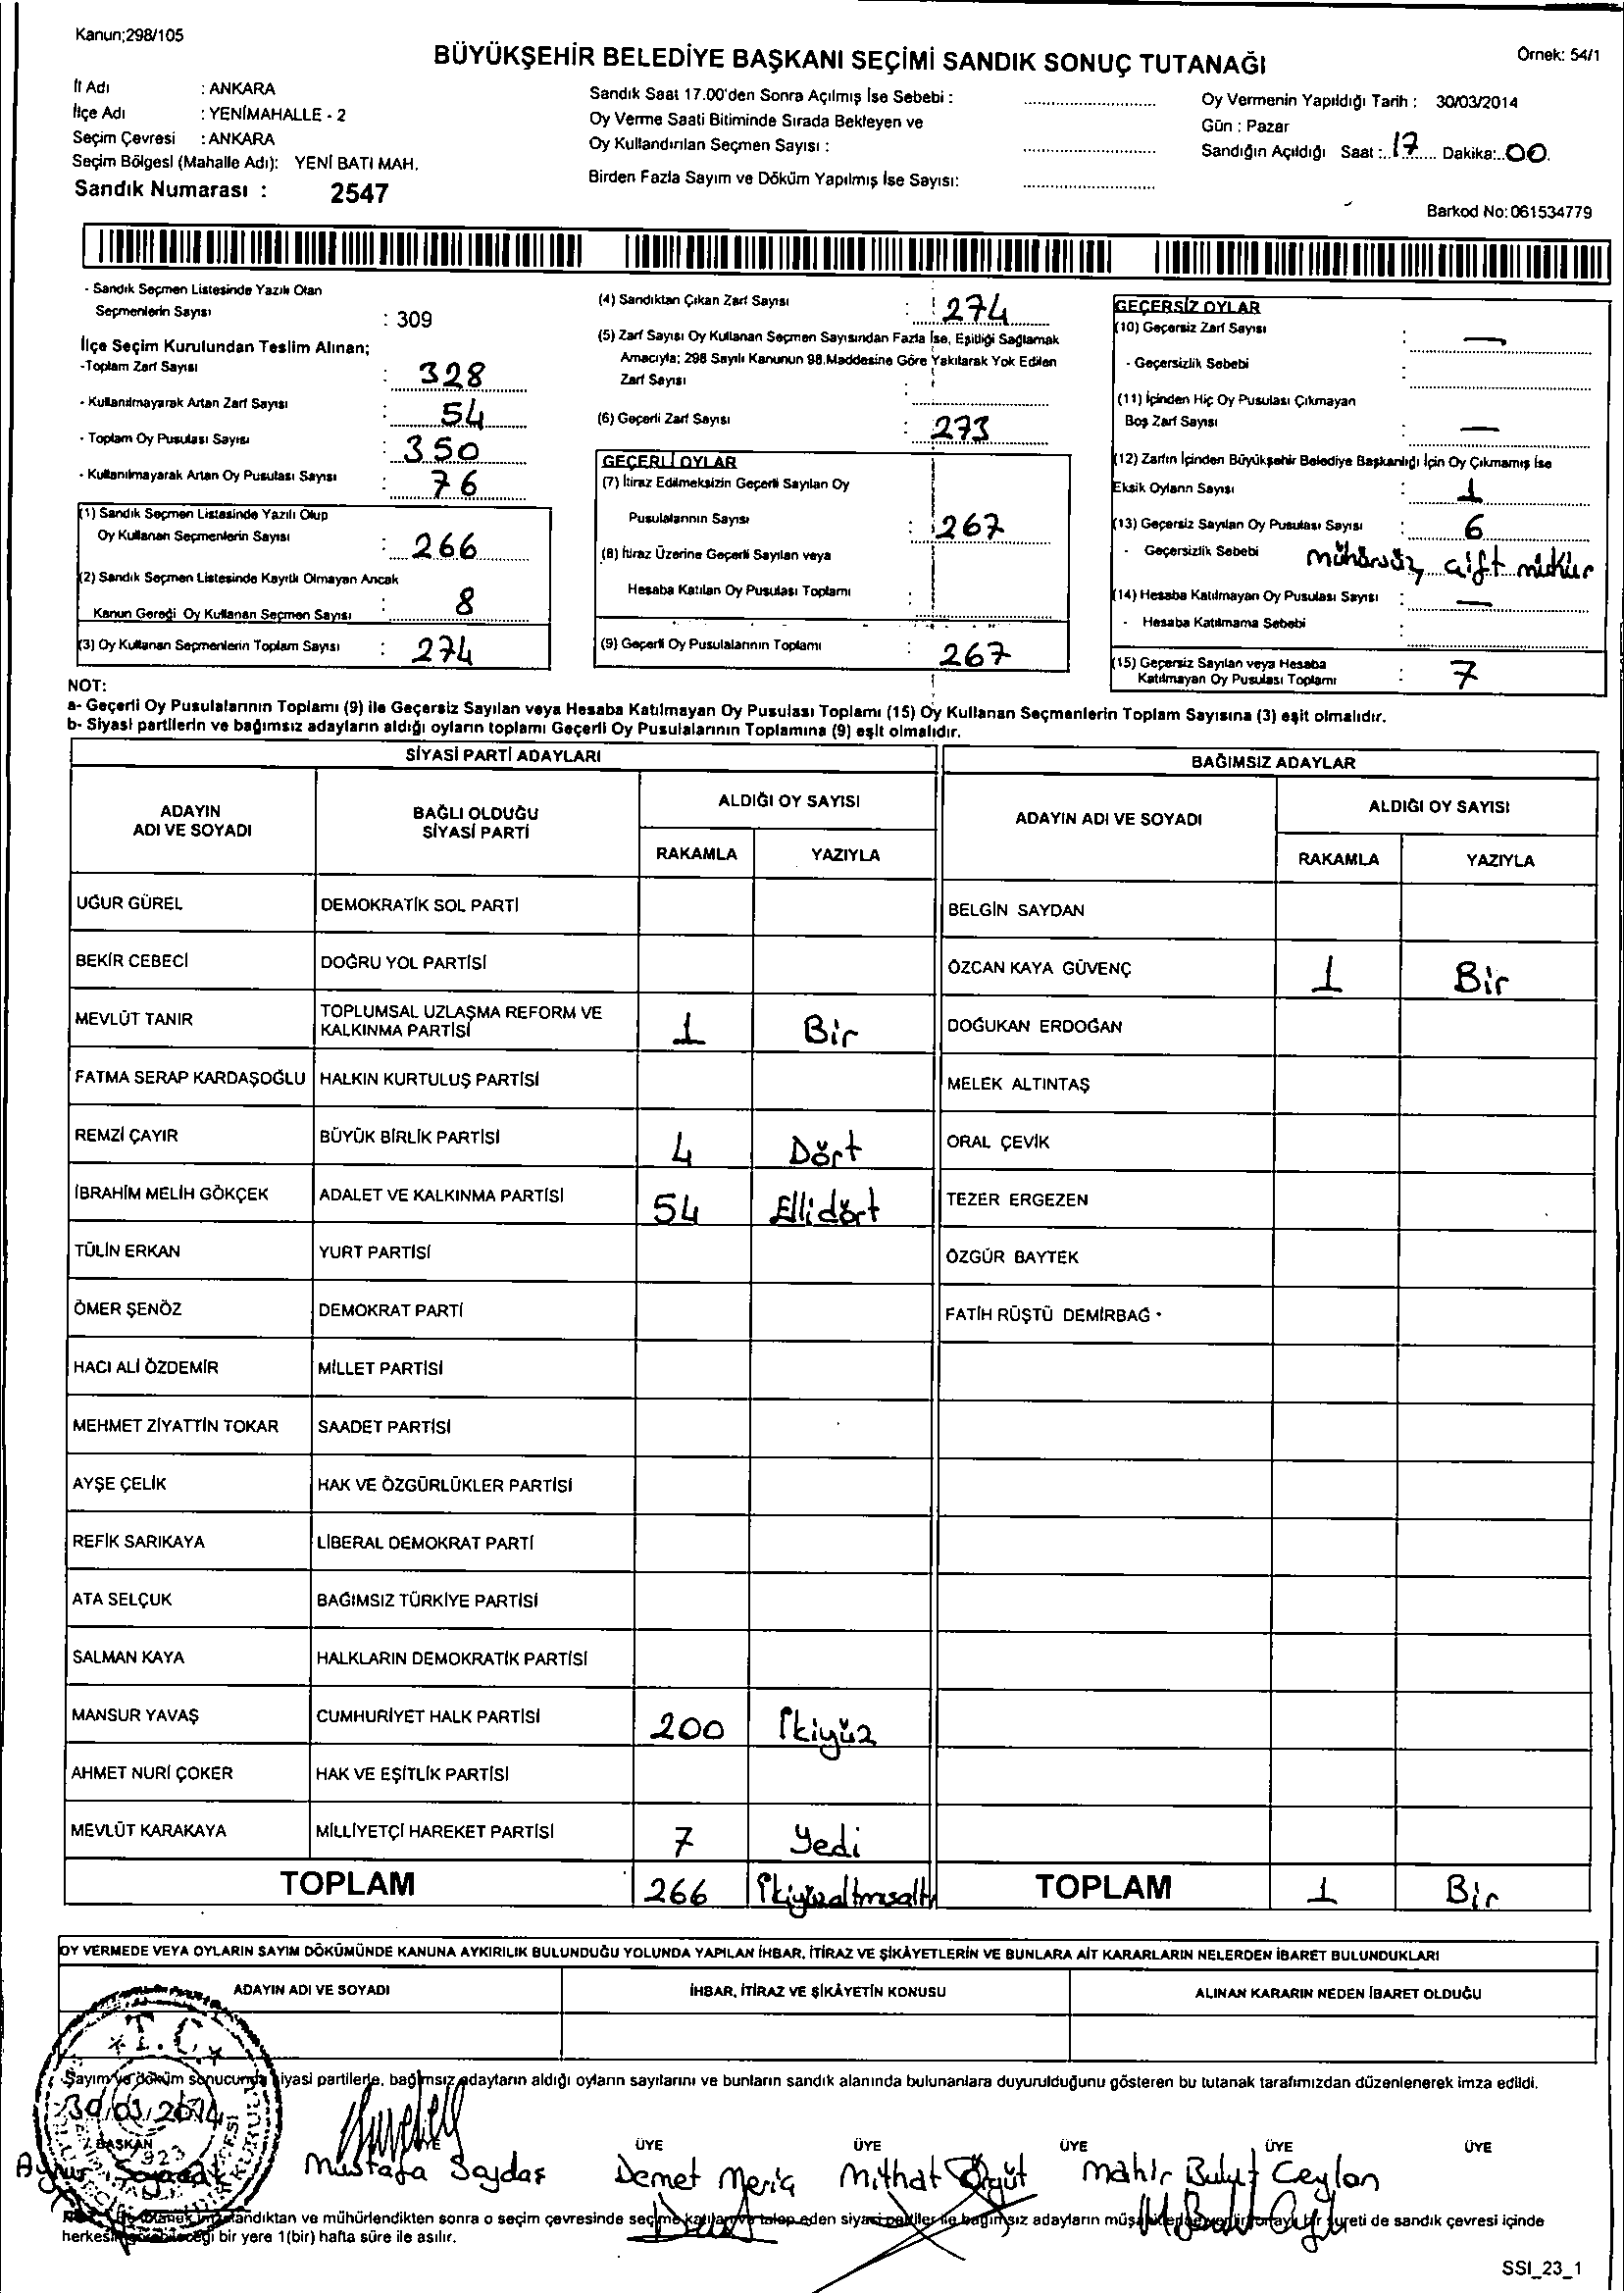 Kanun;298/105
BÜYÜKŞEHİR BELEDİYE BAŞKANI SEÇİMİ SANDIK SONUÇ TUTANAĞI
Örnek: 54/1
İl Adı : ANKARA
İlçe Adı : YENİMAHALLE - 2
Seçim Çevresi : ANKARA
Seçim Bölgesi (Mahalle Adı): YENİ BATI MAH.
Sandık Numarası : 2547
Sandık Saat 17.00'den Sonra Açılmış İse Sebebi :
Oy Verme Saati Bitiminde Sırada Bekleyen ve
Oy Kullandırılan Seçmen Sayısı :
Birden Fazla Sayım ve Döküm Yapılmış İse Sayısı:
Oy Vermenin Yapıldığı Tarih : 30/03/2014
Gün : Pazar
Sandığın Açıldığı Saat : 17 Dakika: 00
Barkod No: 061534779
- Sandık Seçmen Listesinde Yazılı Olan
Seçmenlerin Sayısı : 309
İlçe Seçim Kurulundan Teslim Alınan;
-Toplam Zarf Sayısı : 328
- Kullanılmayarak Artan Zarf Sayısı : 54
- Toplam Oy Pusulası Sayısı : 350
- Kullanılmayarak Artan Oy Pusulası Sayısı : 76
(1) Sandık Seçmen Listesinde Yazılı Olup
Oy Kullanan Seçmenlerin Sayısı : 266
(2) Sandık Seçmen Listesinde Kayıtlı Olmayan Ancak
Kanun Gereği Oy Kullanan Seçmen Sayısı : 8
(3) Oy Kullanan Seçmenlerin Toplam Sayısı : 274
(4) Sandıktan Çıkan Zarf Sayısı : 274
(5) Zarf Sayısı Oy Kullanan Seçmen Sayısından Fazla İse, Eşitliği Sağlamak
Amacıyla; 298 Sayılı Kanunun 98.Maddesine Göre Yakılarak Yok Edilen
Zarf Sayısı :
(6) Geçerli Zarf Sayısı : 273
GEÇERLİ OYLAR
(7) İtiraz Edilmeksizin Geçerli Sayılan Oy
Pusulalarının Sayısı : 267
(8) İtiraz Üzerine Geçerli Sayılan veya
Hesaba Katılan Oy Pusulası Toplamı :
(9) Geçerli Oy Pusulalarının Toplamı : 267
GEÇERSİZ OYLAR
(10) Geçersiz Zarf Sayısı : —
- Geçersizlik Sebebi :
(11) İçinden Hiç Oy Pusulası Çıkmayan
Boş Zarf Sayısı : —
(12) Zarfın İçinden Büyükşehir Belediye Başkanlığı İçin Oy Çıkmamış İse
Eksik Oyların Sayısı : 1
(13) Geçersiz Sayılan Oy Pusulası Sayısı : 6
- Geçersizlik Sebebi mühürsüz, çift mühür
(14) Hesaba Katılmayan Oy Pusulası Sayısı : —
- Hesaba Katılmama Sebebi :
(15) Geçersiz Sayılan veya Hesaba
Katılmayan Oy Pusulası Toplamı : 7
NOT:
a- Geçerli Oy Pusulalarının Toplamı (9) ile Geçersiz Sayılan veya Hesaba Katılmayan Oy Pusulası Toplamı (15) Oy Kullanan Seçmenlerin Toplam Sayısına (3) eşit olmalıdır.
b- Siyasi partilerin ve bağımsız adayların aldığı oyların toplamı Geçerli Oy Pusulalarının Toplamına (9) eşit olmalıdır.
SİYASİ PARTİ ADAYLARI
ADAYIN ADI VE SOYADI
BAĞLI OLDUĞU SİYASİ PARTİ
ALDIĞI OY SAYISI
RAKAMLA YAZIYLA
UĞUR GÜREL DEMOKRATİK SOL PARTİ
BEKİR CEBECİ DOĞRU YOL PARTİSİ
MEVLÜT TANIR TOPLUMSAL UZLAŞMA REFORM VE KALKINMA PARTİSİ 1 Bir
FATMA SERAP KARDAŞOĞLU HALKIN KURTULUŞ PARTİSİ
REMZİ ÇAYIR BÜYÜK BİRLİK PARTİSİ 4 Dört
İBRAHİM MELİH GÖKÇEK ADALET VE KALKINMA PARTİSİ 54 Ellidört
TÜLİN ERKAN YURT PARTİSİ
ÖMER ŞENÖZ DEMOKRAT PARTİ
HACI ALİ ÖZDEMİR MİLLET PARTİSİ
MEHMET ZİYATTİN TOKAR SAADET PARTİSİ
AYŞE ÇELİK HAK VE ÖZGÜRLÜKLER PARTİSİ
REFİK SARIKAYA LİBERAL DEMOKRAT PARTİ
ATA SELÇUK BAĞIMSIZ TÜRKİYE PARTİSİ
SALMAN KAYA HALKLARIN DEMOKRATİK PARTİSİ
MANSUR YAVAŞ CUMHURİYET HALK PARTİSİ 200 İkiyüz
AHMET NURİ ÇOKER HAK VE EŞİTLİK PARTİSİ
MEVLÜT KARAKAYA MİLLİYETÇİ HAREKET PARTİSİ 7 Yedi
TOPLAM 266 İkiyüzaltmışaltı
BAĞIMSIZ ADAYLAR
ADAYIN ADI VE SOYADI
ALDIĞI OY SAYISI
RAKAMLA YAZIYLA
BELGİN SAYDAN
ÖZCAN KAYA GÜVENÇ 1 Bir
DOĞUKAN ERDOĞAN
MELEK ALTINTAŞ
ORAL ÇEVİK
TEZER ERGEZEN
ÖZGÜR BAYTEK
FATİH RÜŞTÜ DEMİRBAĞ
TOPLAM 1 Bir
OY VERMEDE VEYA OYLARIN SAYIM DÖKÜMÜNDE KANUNA AYKIRILIK BULUNDUĞU YOLUNDA YAPILAN İHBAR, İTİRAZ VE ŞİKÂYETLERİN VE BUNLARA AİT KARARLARIN NELERDEN İBARET BULUNDUKLARI
ADAYIN ADI VE SOYADI
İHBAR, İTİRAZ VE ŞİKÂYETİN KONUSU
ALINAN KARARIN NEDEN İBARET OLDUĞU
T.C.
Sayım ve döküm sonucunda siyasi partilerle, bağımsız adayların aldığı oyların sayılarını ve bunların sandık alanında bulunanlara duyurulduğunu gösteren bu tutanak tarafımızdan düzenlenerek imza edildi.
30/03/2014
BAŞKAN ÜYE ÜYE ÜYE ÜYE ÜYE ÜYE
Mustafa Saydas Demet Meriç Mithat Mahir Bulut Ceylan
sandıktan ve mühürlendikten sonra o seçim çevresinde seçime katılan ve talep eden siyasi partiler ile bağımsız adayların bir sureti de sandık çevresi içinde
bir yere 1(bir) hafta süre ile asılır.
SSI_23_1